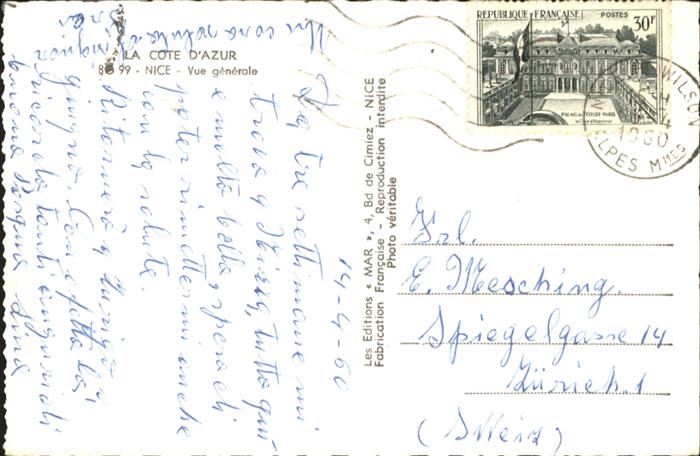 LA COTE D'AZUR
99 - NICE - Vue générale
14-4-60
Da tre settimane mi
trovo a Nizza, tutto qui
è molto bello, spero di
poter rimettermi anche
con la salute.
Ritornerò a Zurigo in
giugno. Con affetto la
ricordo tanti auguri di
buona Pasqua
Un caro saluto
Les Editions « MAR », 4, Bd de Cimiez - NICE
Fabrication Française - Reproduction interdite
Photo véritable
REPUBLIQUE FRANÇAISE POSTES
30F
PALAIS DE L'ELYSEE PARIS
WILSON
1960
ALPES Mmes
Frl.
E. Mesching.
Spiegelgasse 14
Zürich.1
(Sweiz)